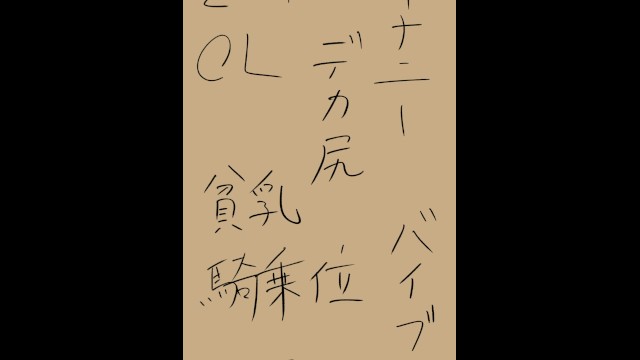 ナニー
バイブ
デカ尻
OL
貧乳
騎乗位